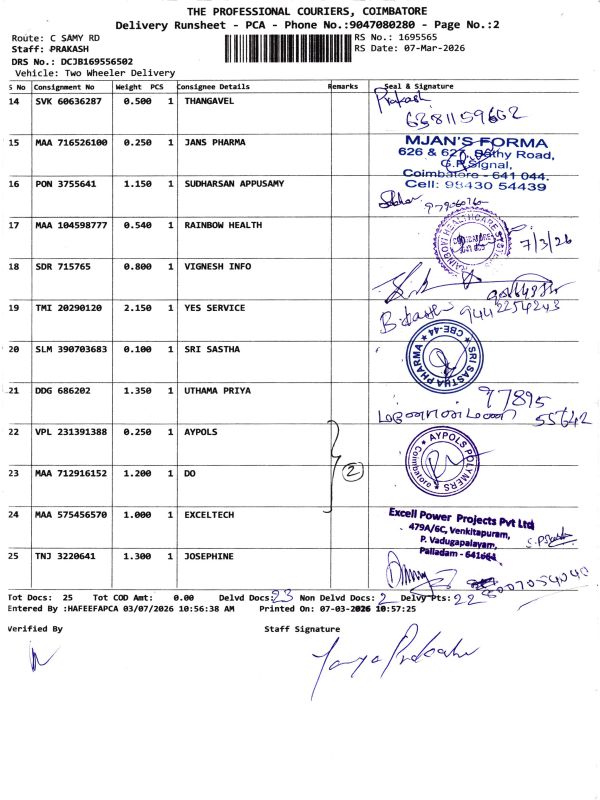 THE PROFESSIONAL COURIERS, COIMBATORE
Delivery Runsheet - PCA - Phone No.:9047080280 - Page No.:2
Route: C SAMY RD
RS No.: 1695565
Staff: PRAKASH
RS Date: 07-Mar-2026
DRS No.: DCJB169556502
Vehicle: Two Wheeler Delivery
S No Consignment No Weight PCS Consignee Details Remarks Seal & Signature
14 SVK 60636287 0.500 1 THANGAVEL
Prakash
6381159662
15 MAA 716526100 0.250 1 JANS PHARMA
MJAN'S FORMA
626 & 627, Road,
G.P.Signal,
Coimbatore - 641 044.
Cell: 98430 54439
16 PON 3755641 1.150 1 SUDHARSAN APPUSAMY
17 MAA 104598777 0.540 1 RAINBOW HEALTH
RAINBOW HEALTHCARE SYSTEMS
COIMBATORE
7/3/26
18 SDR 715765 0.800 1 VIGNESH INFO
19 TMI 20290120 2.150 1 YES SERVICE
9442254243
20 SLM 390703683 0.100 1 SRI SASTHA
SRI SASTHA PHARMA
CBE-44
21 DDG 686202 1.350 1 UTHAMA PRIYA
97895
55642
22 VPL 231391388 0.250 1 AYPOLS
AYPOLS POLYMERS
Coimbatore
23 MAA 712916152 1.200 1 DO
2
24 MAA 575456570 1.000 1 EXCELTECH
Excell Power Projects Pvt Ltd
479A/6C, Venkitapuram,
P. Vadugapalayam,
Palladam - 641664.
25 TNJ 3220641 1.300 1 JOSEPHINE
8007054040
Tot Docs: 25 Tot COD Amt: 0.00 Delvd Docs: 23 Non Delvd Docs: 2 Delvy Pts: 22
Entered By :HAFEEFAPCA 03/07/2026 10:56:38 AM Printed On: 07-03-2026 10:57:25
Verified By
Staff Signature